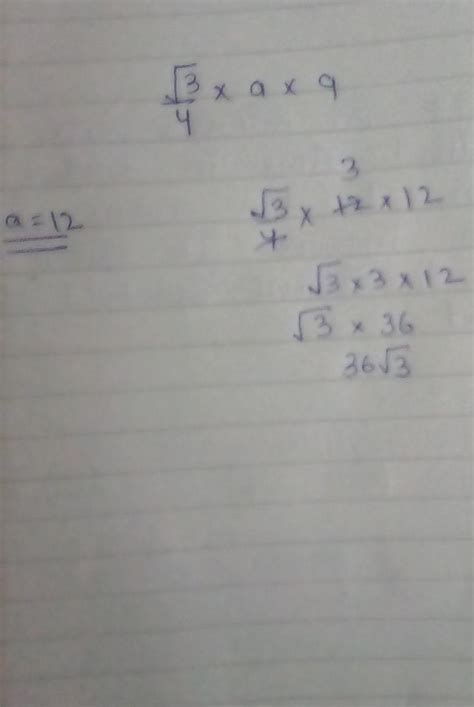 √3/4 × a × a
a = 12
√3/4 × 12 × 12
3
√3 × 3 × 12
√3 × 36
36√3